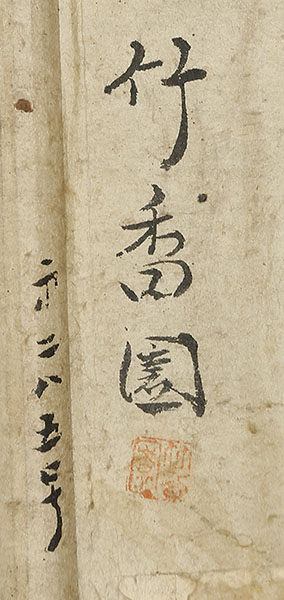 竹香園
第二八五号